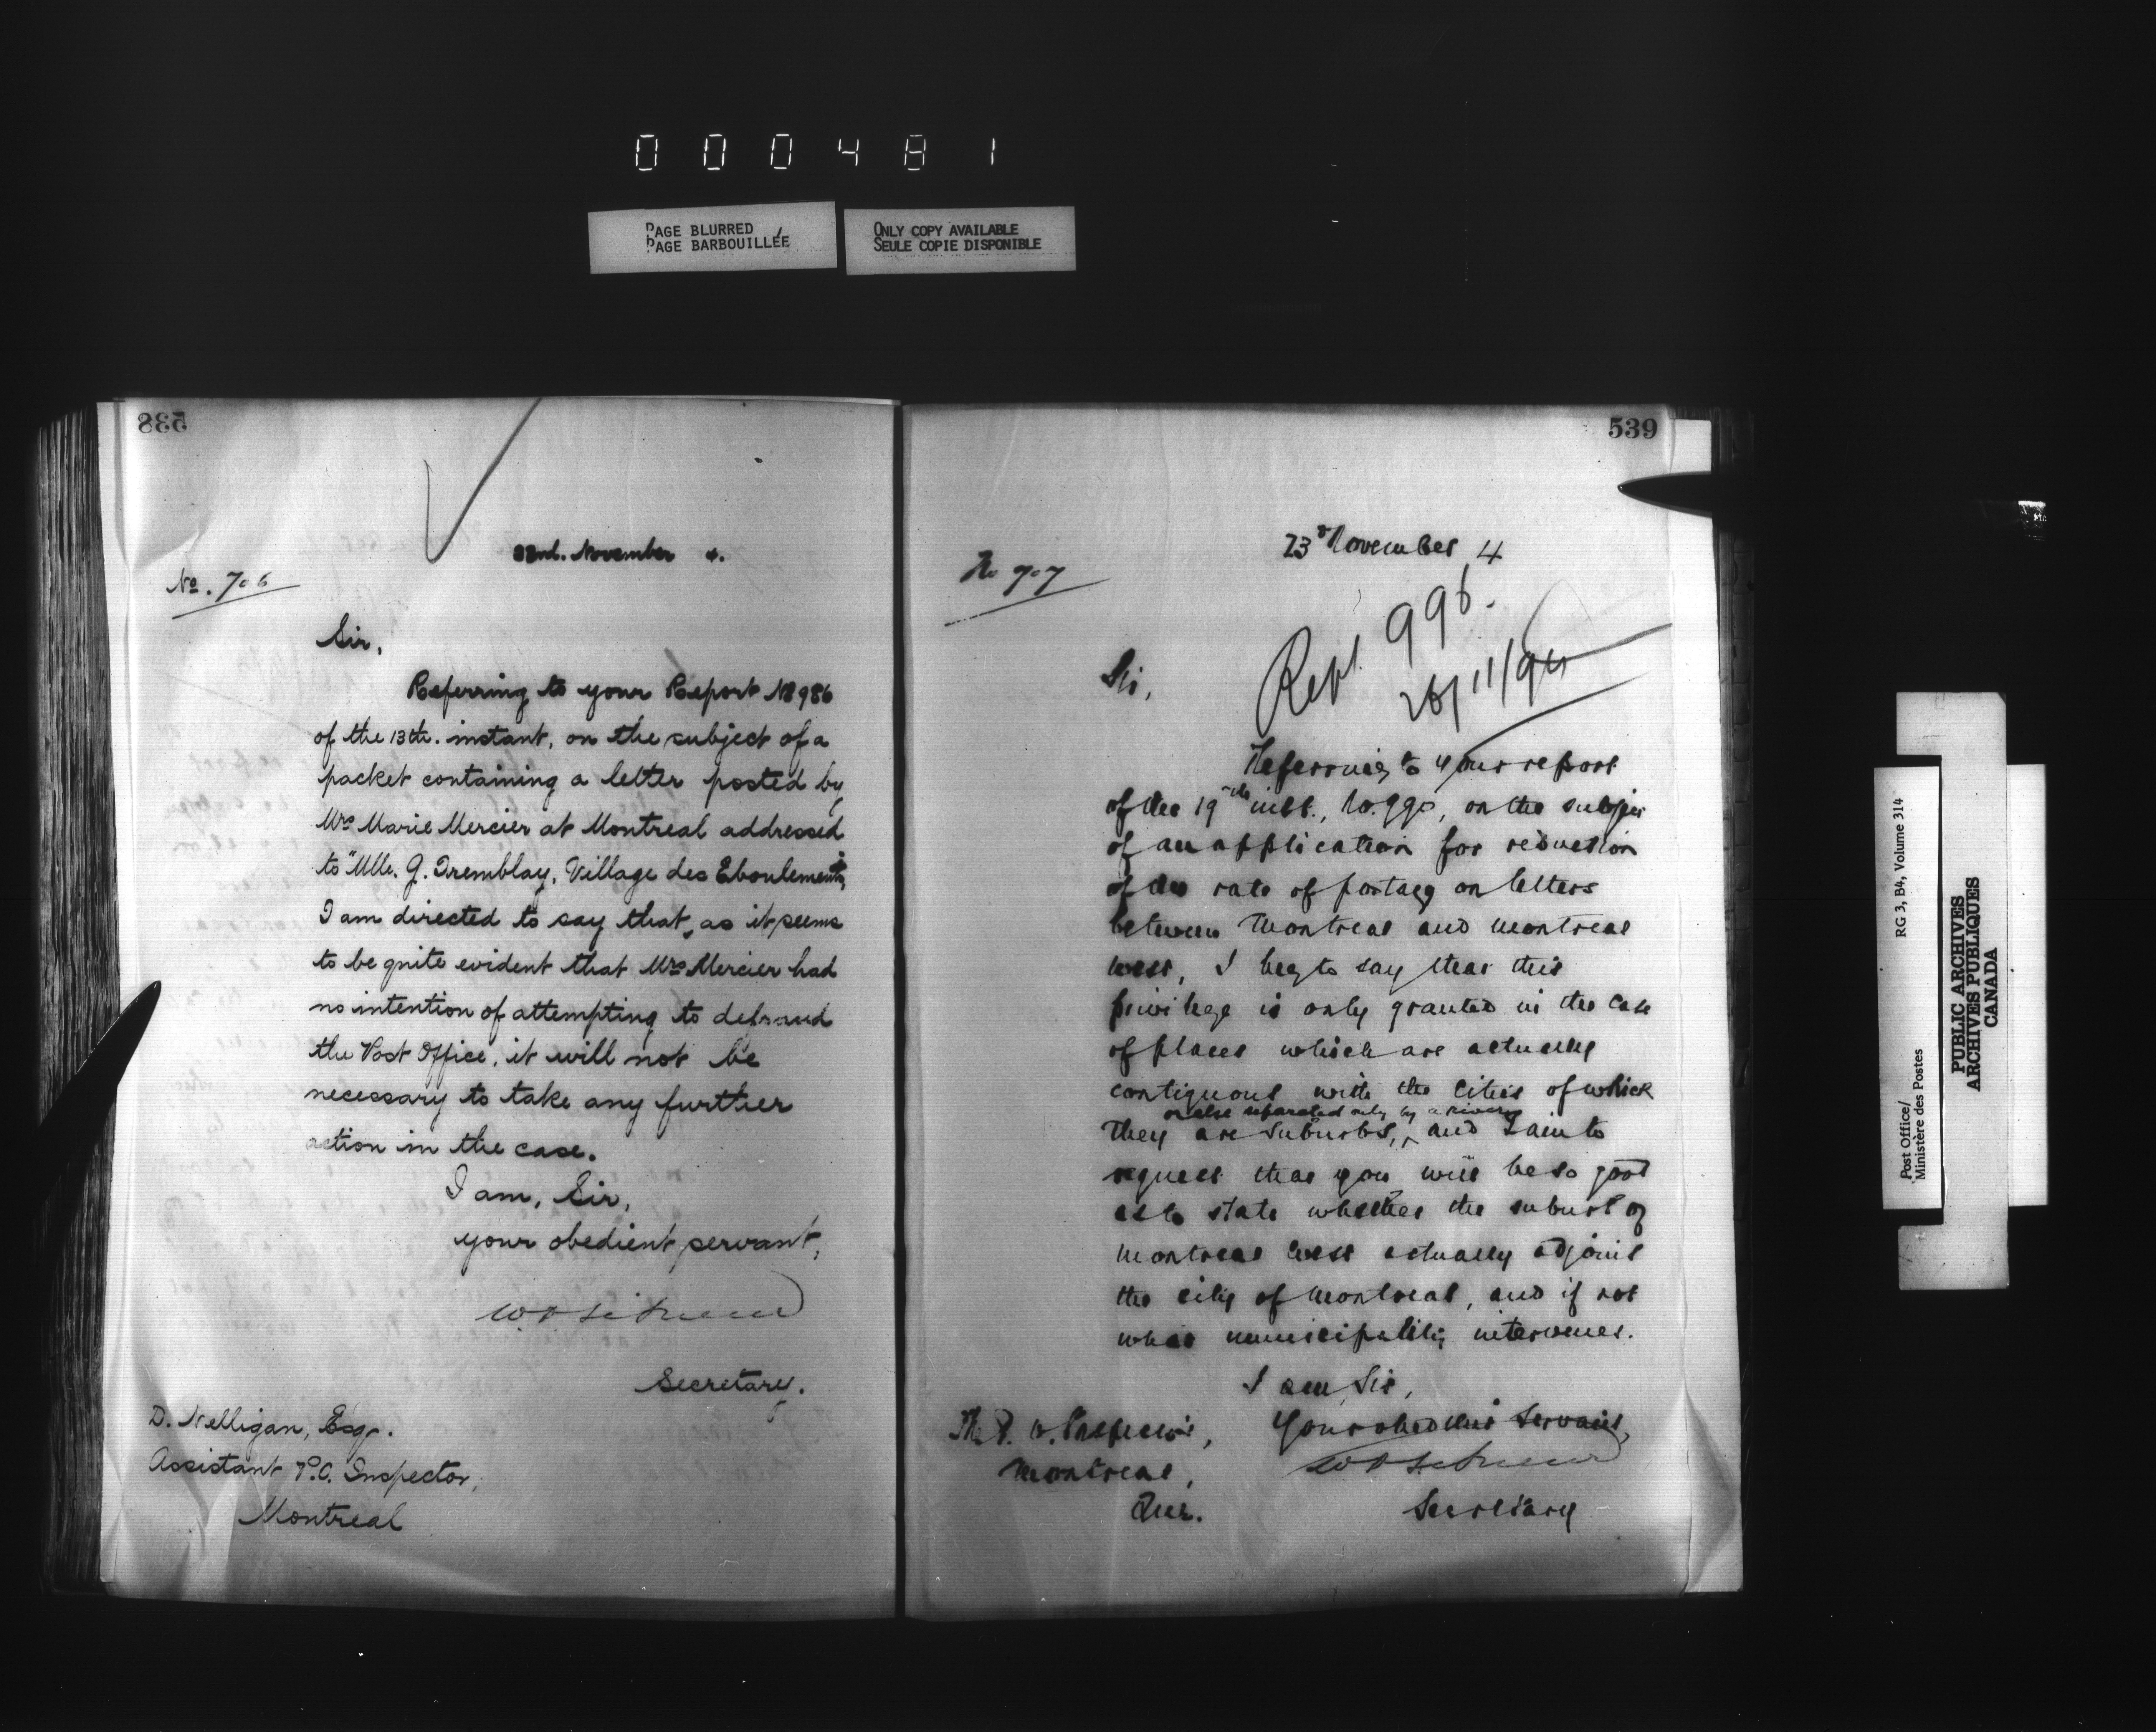 000481
PAGE BLURRED
PAGE BARBOUILLÉE
ONLY COPY AVAILABLE
SEULE COPIE DISPONIBLE
538
22nd. November 4.
No. 706
Sir,
Referring to your Report No 986
of the 13th. instant, on the subject of a
packet containing a letter posted by
Mrs Marie Mercier at Montreal addressed
to "Mlle. G. Tremblay, Village des Eboulements,
I am directed to say that, as it seems
to be quite evident that Mrs Mercier had
no intention of attempting to defraud
the Post Office, it will not be
necessary to take any further
action in the case.
I am, Sir,
your obedient servant,
Secretary.
D. Nelligan, Esq.
Assistant P.O. Inspector,
Montreal
539
23d November 4
No 707
Rept. 996.
26/11/94
Sir,
Referring to your report
of the 19th inst., No. 990, on the subject
of an application for reduction
of the rate of postage on letters
between Montreal and Montreal
West, I beg to say that this
privilege is only granted in the case
of places which are actually
contiguous with the cities of which
or else separated only by a river
they are suburbs, ^ and I am to
request that you will be so good
as to state whether the suburb of
Montreal West actually adjoins
the city of Montreal, and if not
what municipality intervenes.
I am, Sir,
Your obedient Servant,
Secretary
The P. O. Inspector,
Montreal,
Que.
Post Office/
Ministère des Postes
RG 3, B4, Volume 314
PUBLIC ARCHIVES
ARCHIVES PUBLIQUES
CANADA